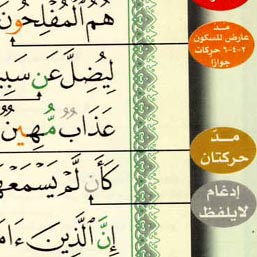 هُمُ ٱلْمُفْلِحُونَ
لِيُضِلَّ عَن سَبِي
عَذَابٌ مُّهِينٌ
كَأَن لَّمْ يَسْمَعْهَا
إِنَّ ٱلَّذِينَ ءَامَ
مدّ
عارض للسكون
٢-٤-٦ حركات
جوازًا
مدّ
حركتان
إدغام
لا يلفظ